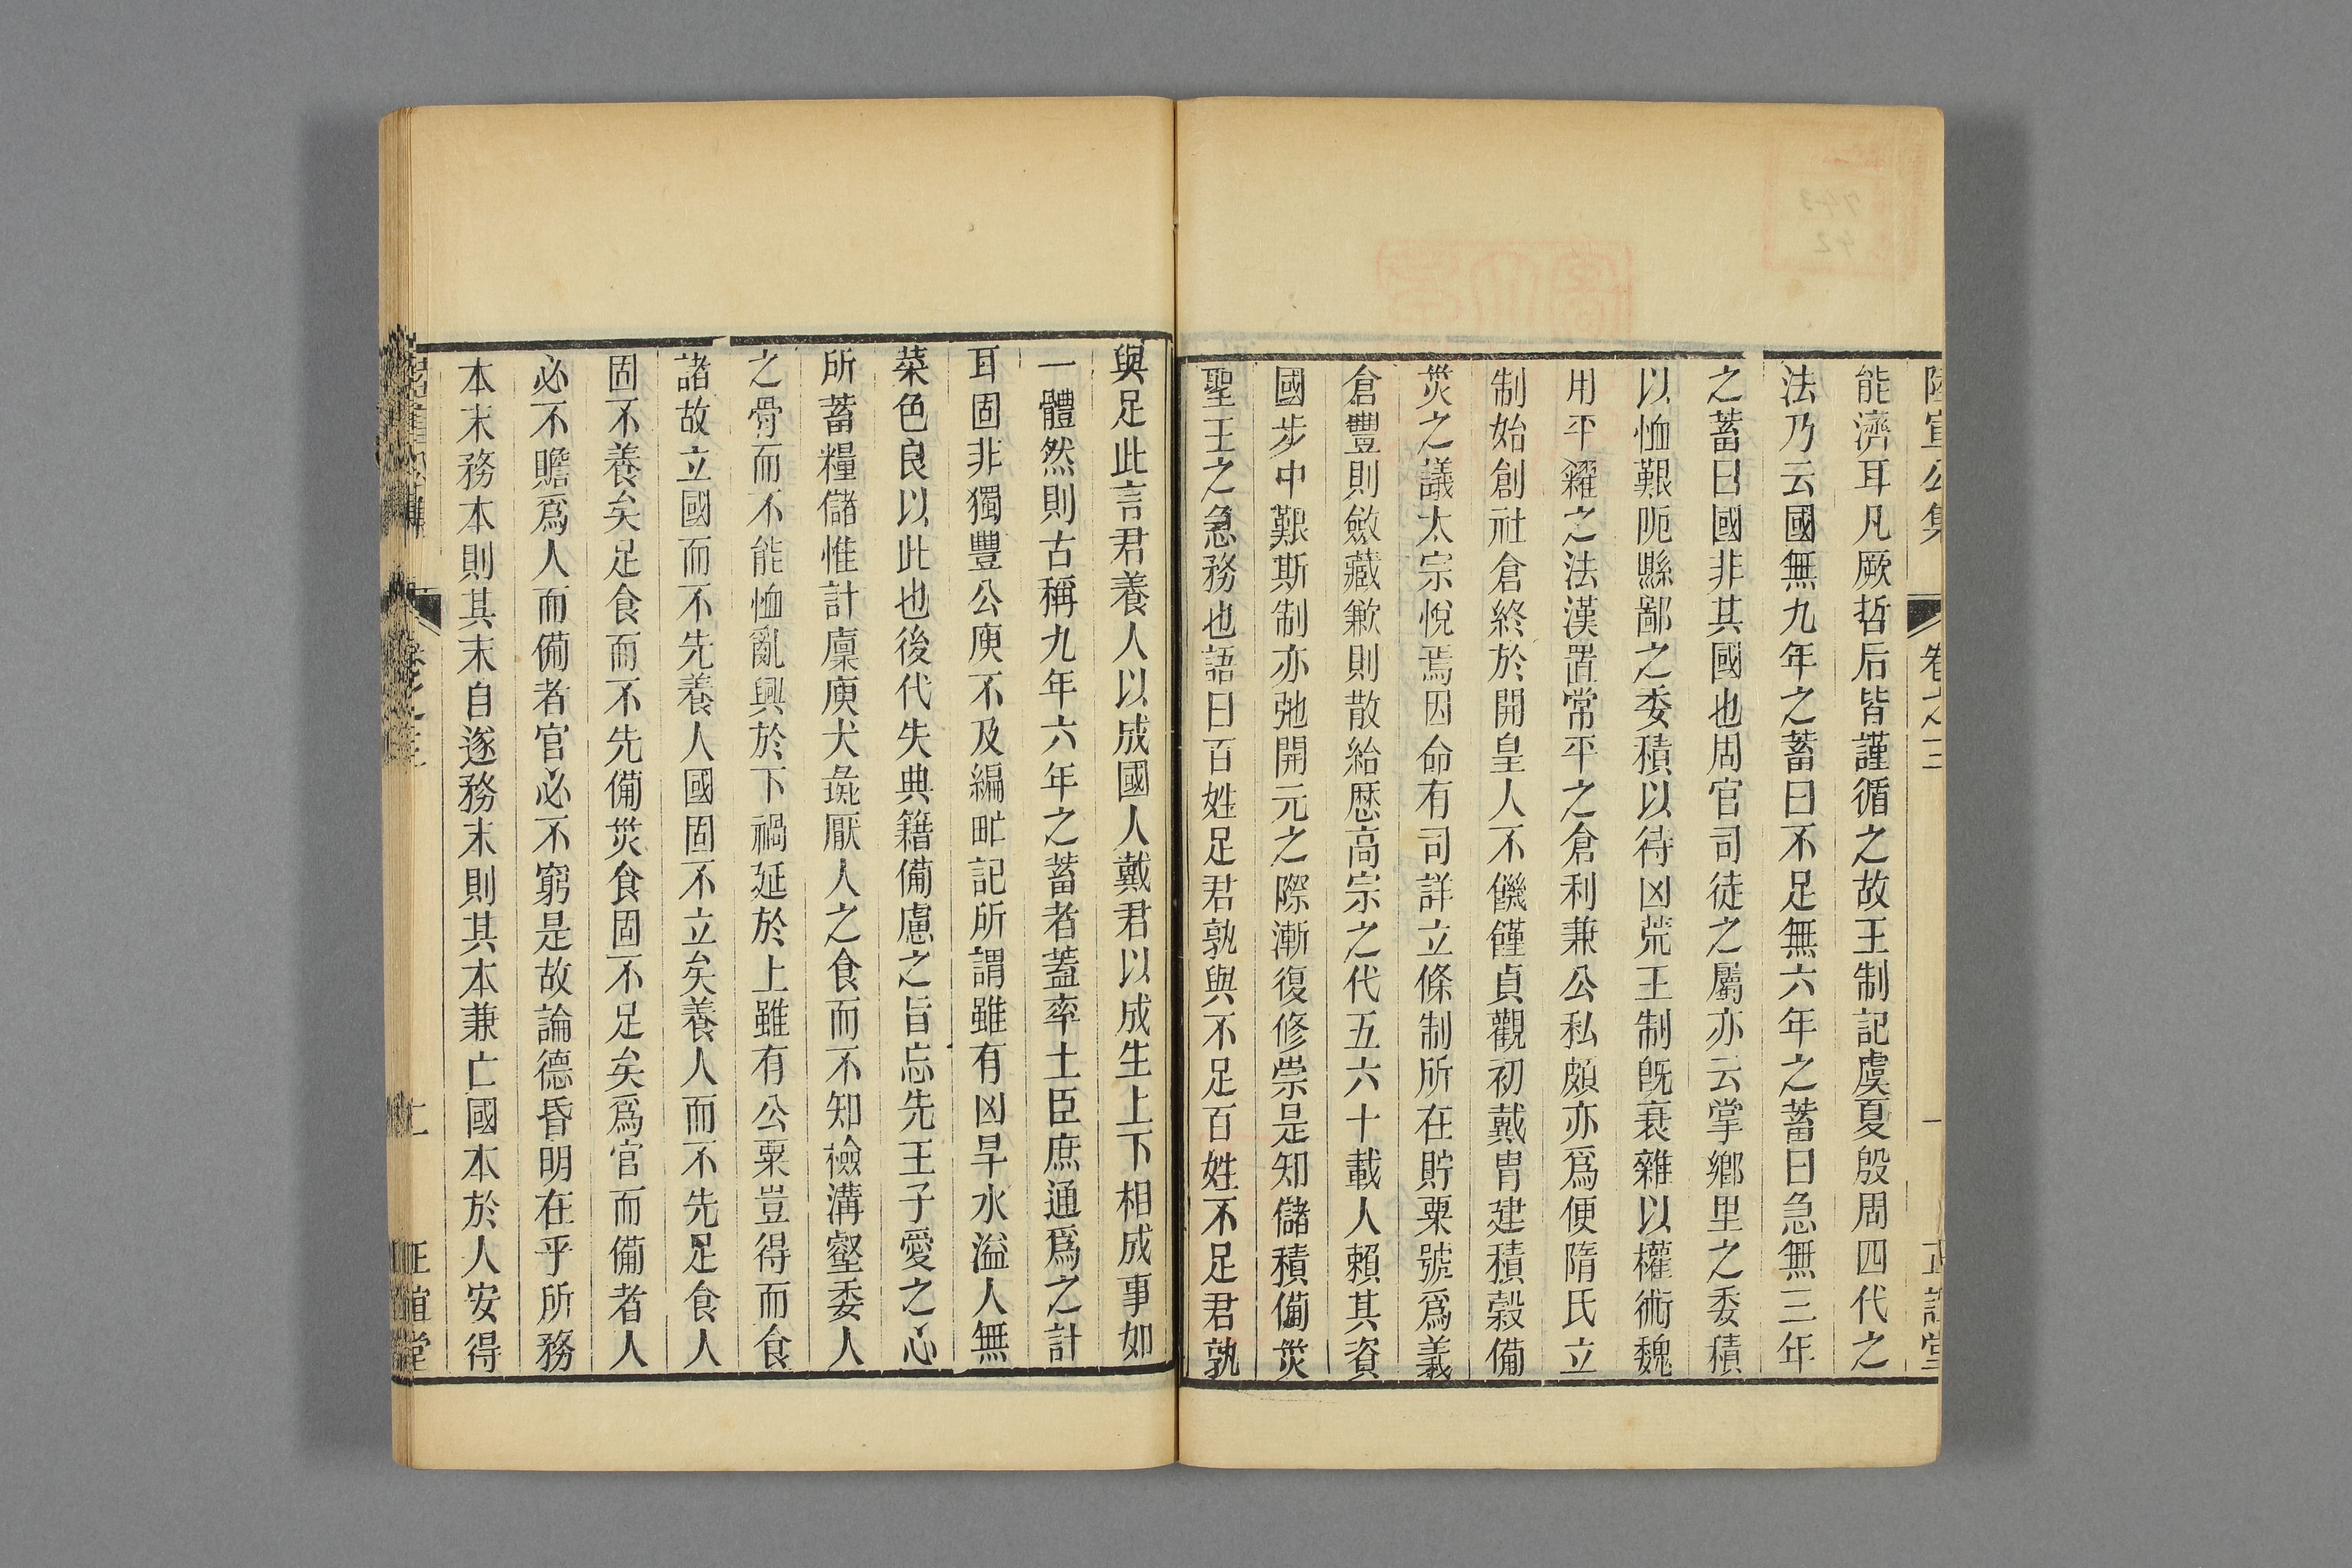 陸宣公集 卷之三 一 正誼堂
能濟耳凡厥哲后皆謹循之故王制記虞夏殷周四代之
法乃云國無九年之蓄曰不足無六年之蓄曰急無三年
之蓄曰國非其國也周官司徒之屬亦云掌鄉里之委積
以恤艱阨縣鄙之委積以待凶荒王制旣衰雜以權術魏
用平糴之法漢置常平之倉利兼公私頗亦爲便隋氏立
制始創社倉終於開皇人不饑饉貞觀初戴胄建積榖備
災之議太宗悅焉因命有司詳立條制所在貯粟號爲義
倉豐則斂藏歉則散給歷高宗之代五六十載人賴其資
國步中艱斯制亦弛開元之際漸復修崇是知儲積備災
聖王之急務也語曰百姓足君孰與不足百姓不足君孰
與足此言君養人以成國人戴君以成生上下相成事如
一體然則古稱九年六年之蓄者蓋率土臣庶通爲之計
耳固非獨豐公庾不及編甿記所謂雖有凶旱水溢人無
菜色良以此也後代失典籍備慮之旨忘先王子愛之心
所蓄糧儲惟計廩庾犬彘厭人之食而不知檢溝壑委人
之骨而不能恤亂興於下禍延於上雖有公粟豈得而食
諸故立國而不先養人國固不立矣養人而不先足食人
固不養矣足食而不先備災食固不足矣爲官而備者人
必不贍爲人而備者官必不窮是故論德昏明在乎所務
本末務本則其末自遂務末則其本兼亡國本於人安得
卷之三 二 正誼堂